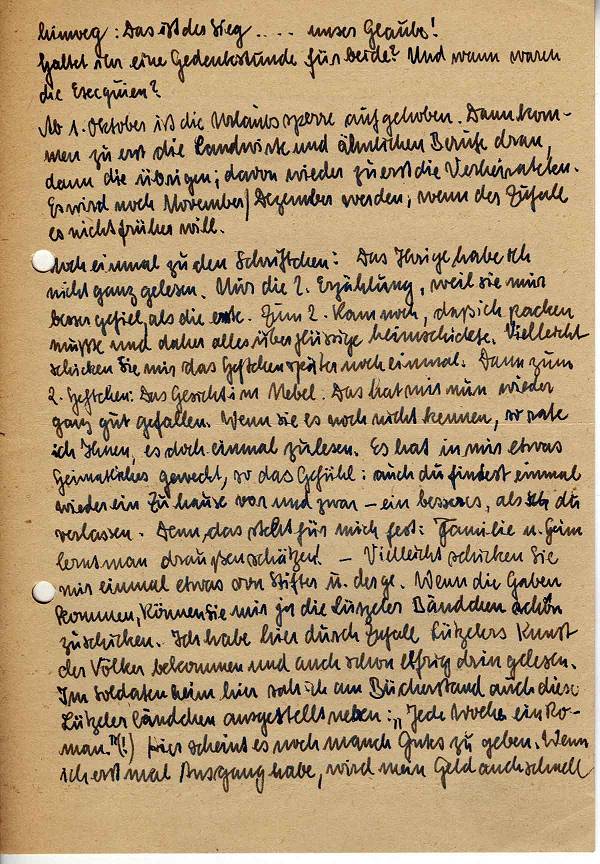 hinweg: Das ist der Sieg .... unser Glaube!
Haltet ihr eine Gedenkstunde für beide? Und wann waren
die Exequien?
Ab 1. Oktober ist die Urlaubssperre aufgehoben. Dann kom-
men zu erst die Landwirte und ähnlichen Berufe dran,
dann die übrigen; davon wieder zu erst die Verheirateten.
Es wird noch November/Dezember werden, wenn der Zufall
es nicht früher will.
Noch einmal zu den Schriftchen: Das Ihrige habe ich
nicht ganz gelesen. Nur die 2. Erzählung, weil sie mir
besser gefiel, als die erste. Zum 2. kam noch, daß ich packen
mußte und daher alles überflüssige heimschickte. Vielleicht
schicken Sie mir das Heftchen später noch einmal. Dann zum
2. Heftchen: Das Gesicht im Nebel. Das hat mir nun wieder
ganz gut gefallen. Wenn sie es noch nicht kennen, so rate
ich Ihnen, es doch einmal zu lesen. Es hat in mir etwas
Heimatliches geweckt, so das Gefühl: auch du findest einmal
wieder ein Zuhause vor und zwar – ein besseres, als du
verlassen. Denn das steht für mich fest: Familie u. Heim
lernt man draußen schätzen. – Vielleicht schicken Sie
mir einmal etwas von Stifter u. derge. Wenn die Gaben
kommen, können Sie mir ja die Lützeler Bändchen schön
zuschicken. Ich habe hier durch Zufall Lützelers Kunst
der Völker bekommen und auch schon eifrig drin gelesen.
Im Soldatenheim hier sah ich am Bücherstand auch diese
Lützelerbändchen ausgestellt neben: „Jede Woche ein Ro-
man."(!) Hier scheint es noch manch Gutes zu geben. Wenn
ich erst mal Ausgang habe, wird mein Geld auch schnell